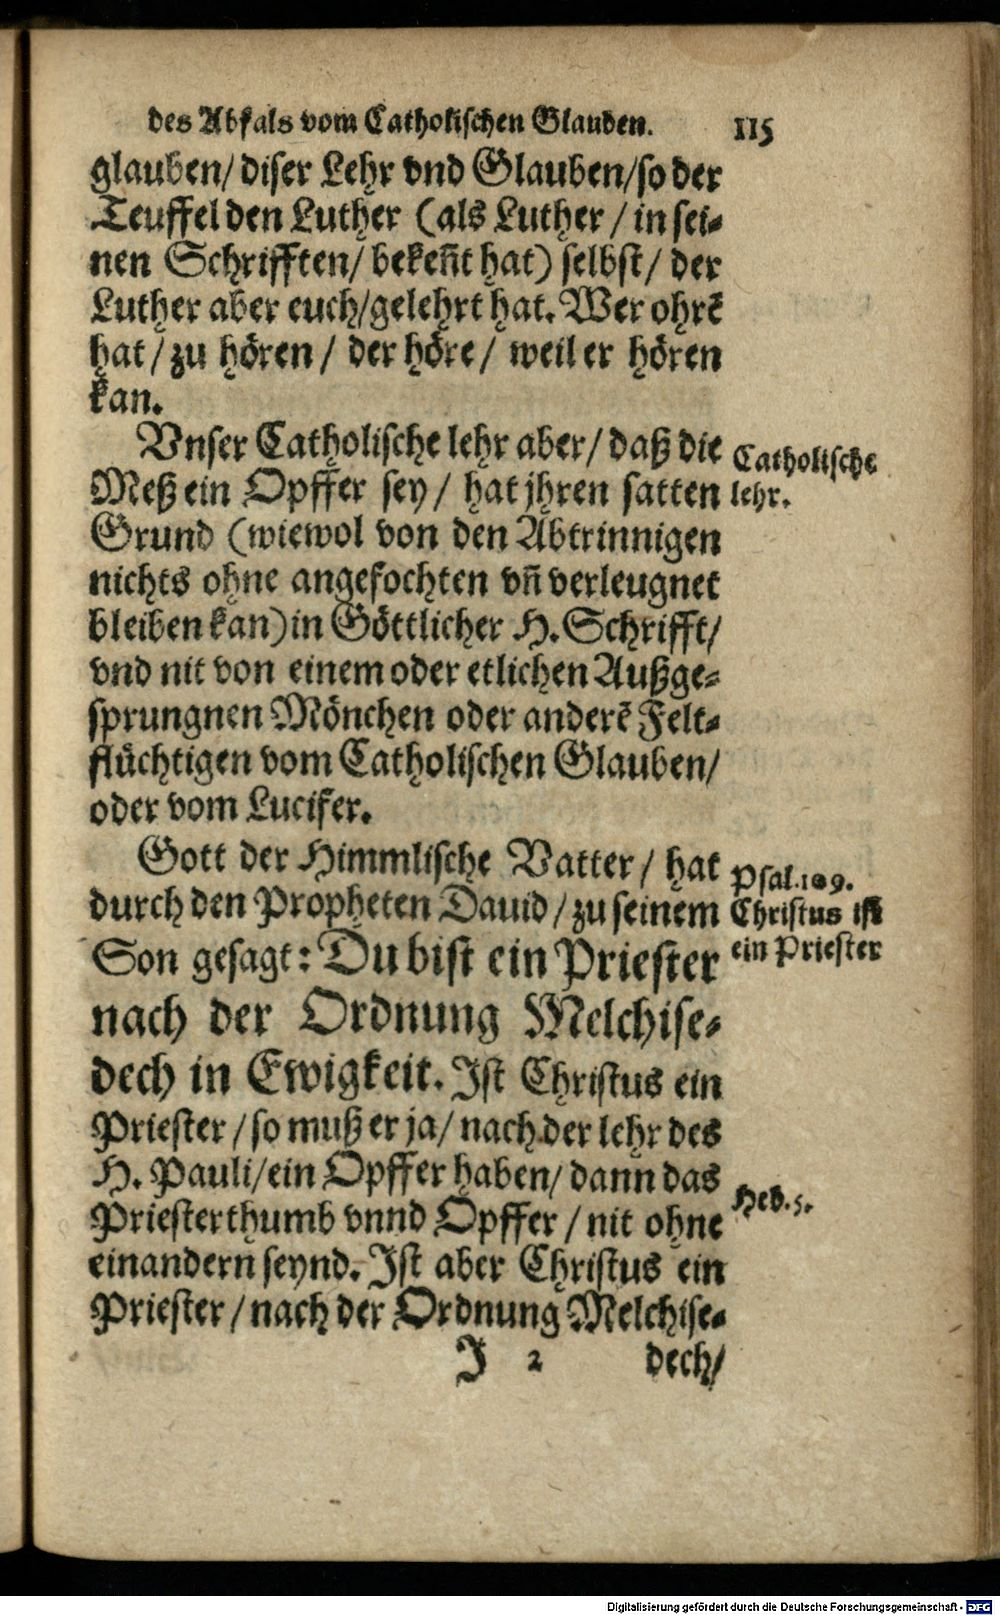 des Abfals vom Catholischen Glauben. 115
glauben/ diser Lehr vnd Glauben/so der
Teuffel den Luther (als Luther / in sei-
nen Schrifften/ bekeñt hat) selbst/ der
Luther aber euch/gelehrt hat. Wer ohrē
hat / zu hören / der höre / weil er hören
kan.
Vnser Catholische lehr aber/ daß die
Catholische
Meß ein Opffer sey / hat jhren satten
lehr.
Grund (wiewol von den Abtrinnigen
nichts ohne angefochten vñ verleugnet
bleiben kan) in Göttlicher H. Schrifft/
vnd nit von einem oder etlichen Außge-
sprungnen Mönchen oder anderē Felt-
flüchtigen vom Catholischen Glauben/
oder vom Lucifer.
Gott der Himmlische Vatter / hat
Psal. 109.
durch den Propheten Dauid / zu seinem
Christus ist
Son gesagt: Du bist ein Priester
ein Priester
nach der Ordnung Melchise-
dech in Ewigkeit. Ist Christus ein
Priester / so muß er ja / nach der lehr des
H. Pauli/ein Opffer haben/ dann das
Heb. 5.
Priesterthumb vnnd Opffer / nit ohne
einandern seynd. Ist aber Christus ein
Priester / nach der Ordnung Melchise-
J 2 dech/
Digitalisierung gefördert durch die Deutsche Forschungsgemeinschaft - DFG